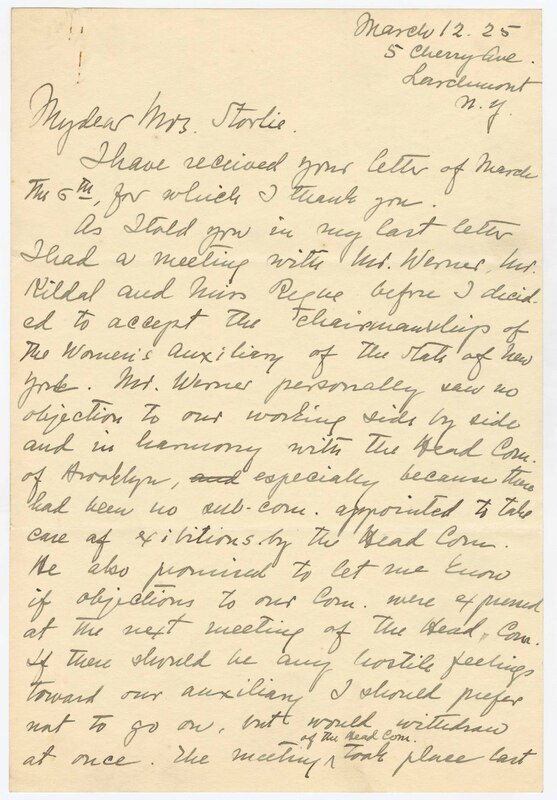 March 12. 25
5 Cherry Ave.
Larchmont
N.Y.
My dear Mrs. Storlie.
I have received your letter of March
the 6th, for which I thank you.
As I told you in my last letter
I had a meeting with Mr. Werner, Mr.
Kildal and Miss Regue before I decid-
ed to accept the chairmanship of
the Women's auxiliary of the State of New
York. Mr. Werner personally saw no
objection to our working side by side
and in harmony with the Head Com.
of Brooklyn, and especially because there
had been no sub-com. appointed to take
care of exibitions by the Head Com.
He also promised to let me know
if objections to our Com. were expressed
at the next meeting of the Head Com.
If there should be any hostile feelings
toward our auxiliary I should prefer
not to go on, but would withdraw
of the Head Com.
at once. The meeting ^ took place last